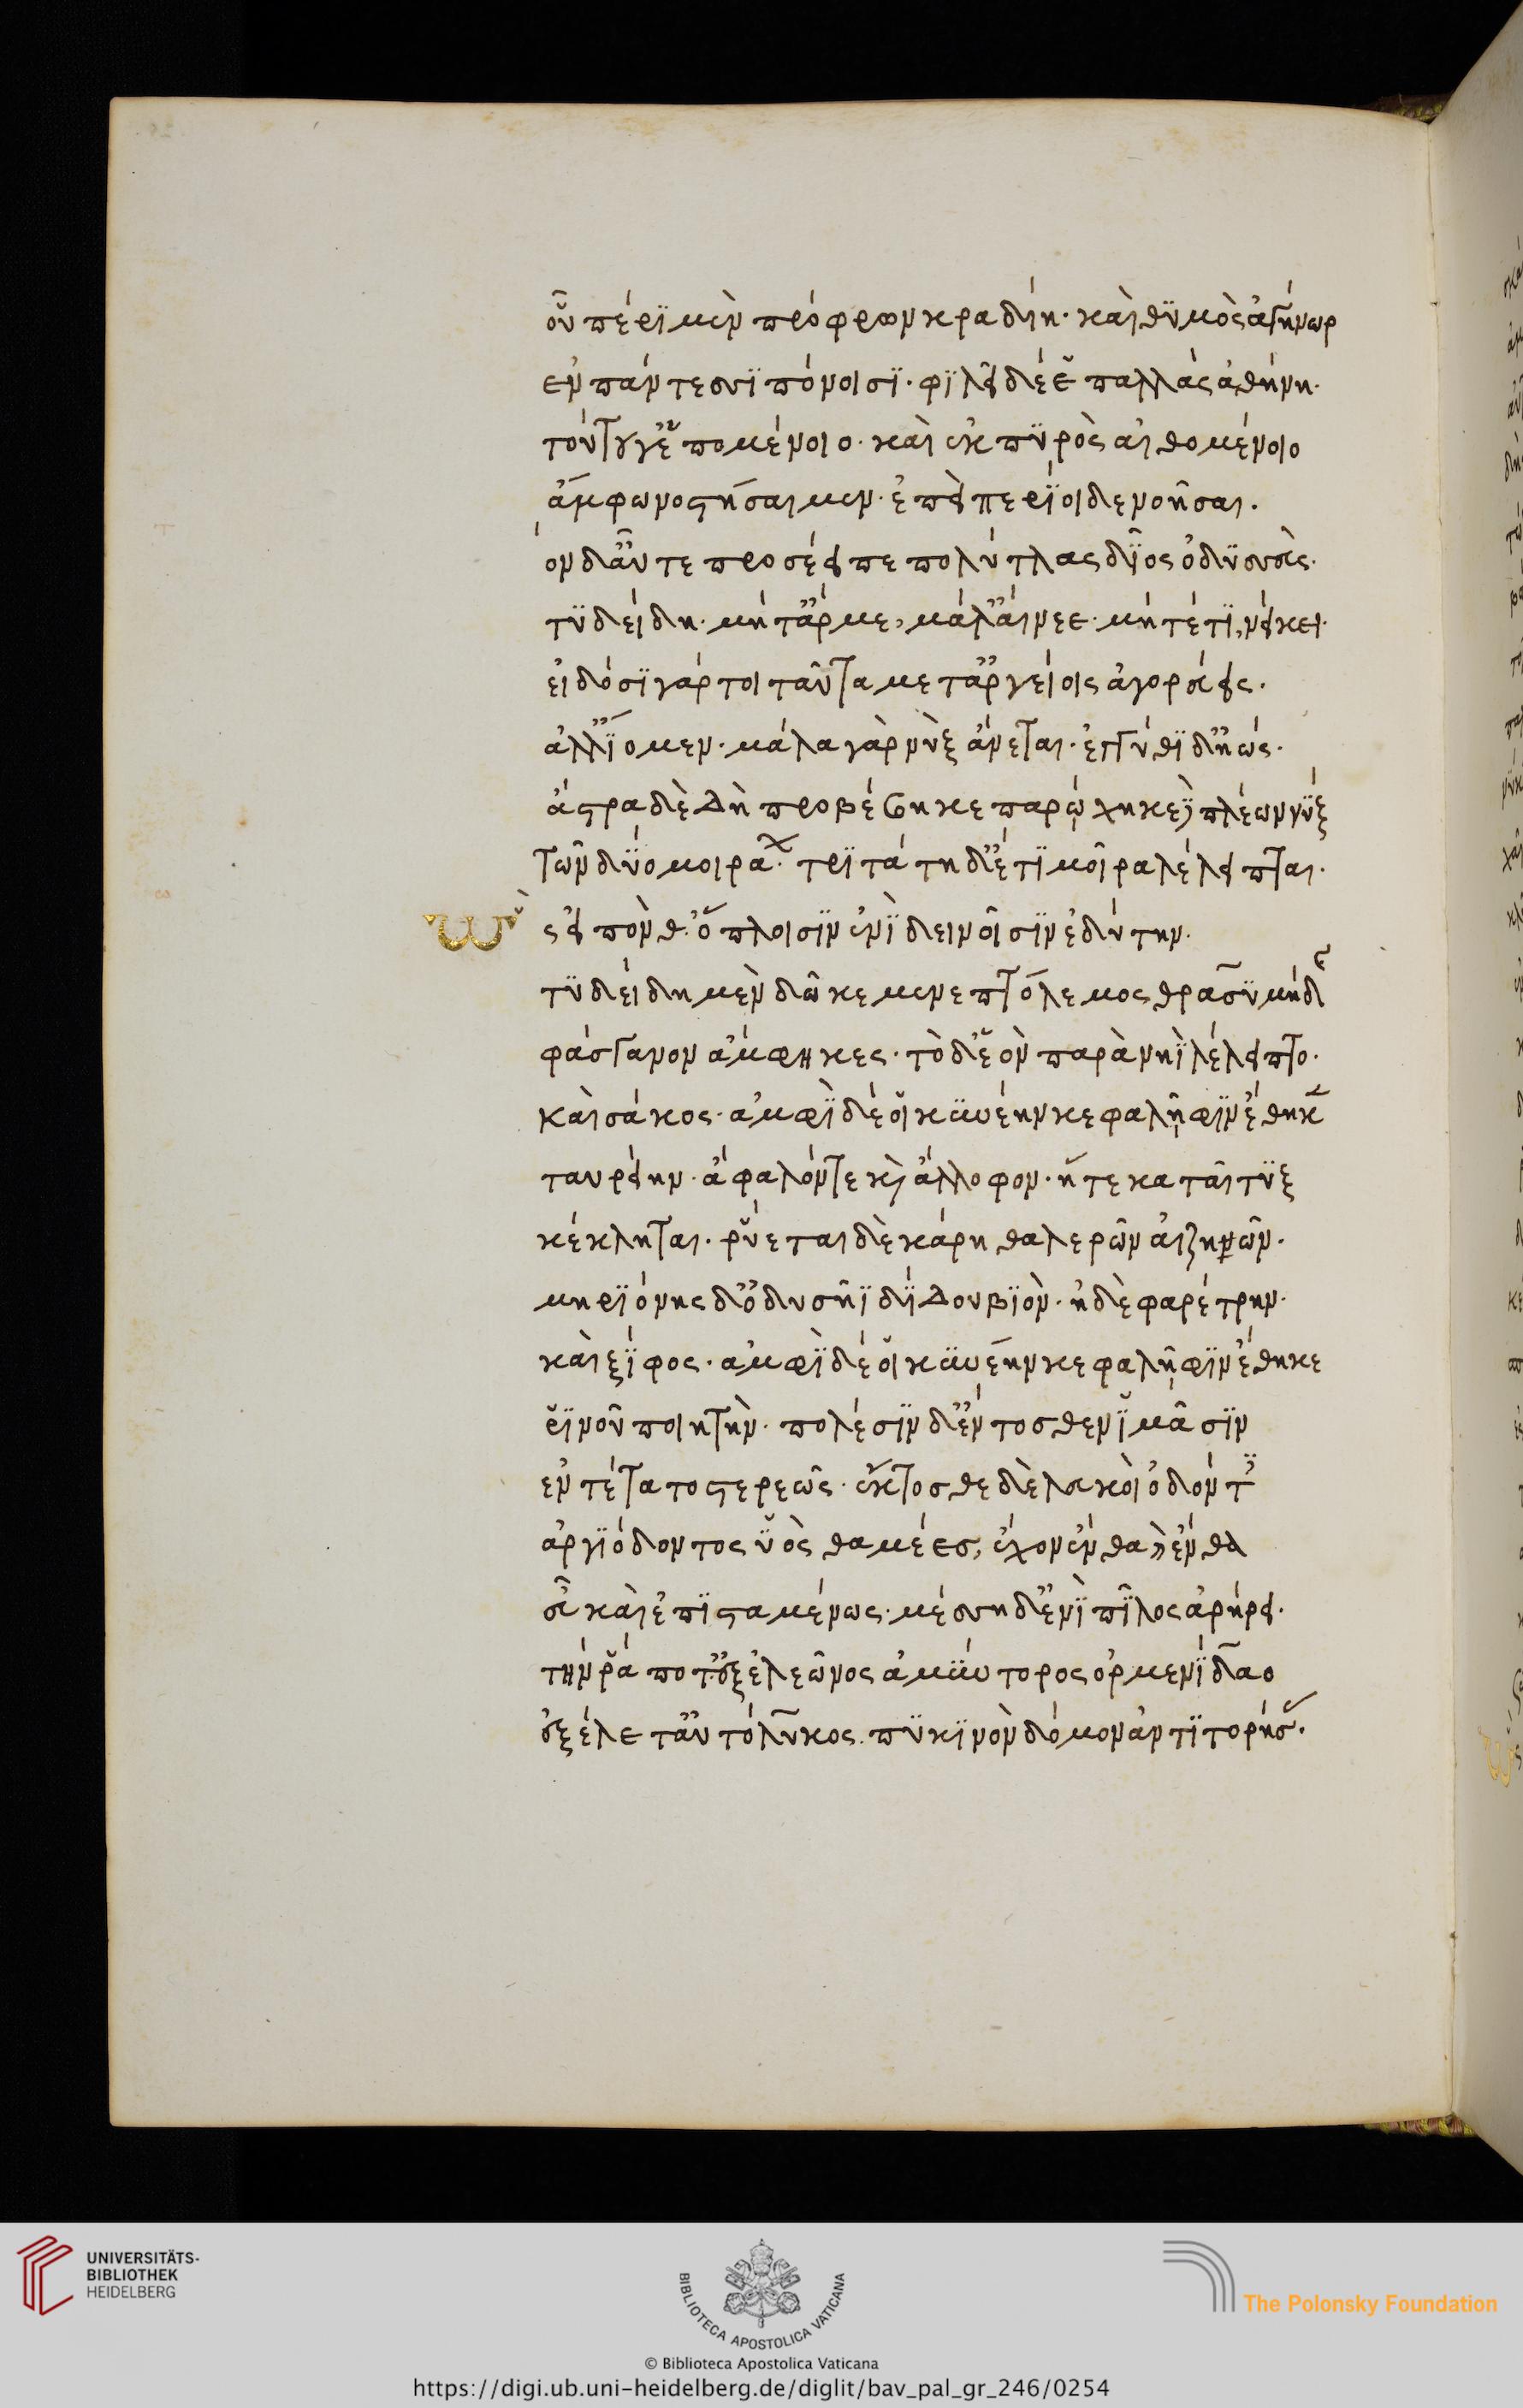 οὗ πέρϊ μὲν πρόφρων κραδίη· καὶ θϋμὸς ἀγήνωρ
ἐν πάντεσσϊ πόνοισϊ· φϊλεῖ δέ ἑ παλλὰς ἀθήνη·
τούτου γ' ἑσπομένοιο· καὶ ἐκ πϋρὸς αἰθομένοιο
ἄμφω νοστήσαιμεν· ἐπεὶ περίοιδε νοῆσαι·
τὸν δ' αὖτε προσέειπε πολύτλας δῖος ὀδϋσσεύς·
τϋδείδη· μήτ' ἄρ με, μάλ' αἴνεε· μήτέ τϊ, νείκει·
εἰδόσϊ γάρ τοι ταῦτα μετ' ἀργείοις ἀγορεύεις·
ἀλλ' ἴομεν· μάλα γὰρ νὺξ ἄνεται· ἐγγύθϊ δ' ἠώς·
ἄστρα δὲ δὴ προβέβηκε παρῴχηκεϊ πλέων νὺξ
τῶν δύο μοιρά· τρϊτάτη δ' ἔτϊ μοῖρα λέλειπται·
ὣς εἰπόνθ' ὅπλοισϊν ἐνὶ δεινοῖσϊν ἐδύτην·
τϋδείδη μὲν δῶκε μενεπτόλεμος θρασϋμήδ
φάσγανον ἄμφηκες· τὸ δ' ἑὸν παρὰ νηῒ λέλειπτο·
καὶ σάκος· ἀμφὶ δέ οἱ κυνέην κεφαλῆφϊν ἔθηκ
ταυρείην· ἄφαλόν τε καὶ ἄλλοφον· ἥ τε καταῖτυξ
κέκληται· ῥύεται δὲ κάρη θαλερῶν αἰζηῶν·
μηρϊόνης δ' ὀδυσῆϊ δίδου βϊὸν· ἠδὲ φαρέτρην·
καὶ ξίφος· ἀμφὶ δέ οἱ κυνέην κεφαλῆφϊν ἔθηκε
ῥϊνοῦ ποιητὴν· πολέσϊν δ' ἔντοσθεν ἱμᾶσϊν
ἐντέτατο στερεῶς· ἔκτοσθε δὲ λευκοὶ ὀδόντ
ἀργϊόδοντος ὑὸς θαμέες, ἔχον ἔνθα καὶ ἔνθα
εὖ καὶ ἐπϊσταμένως· μέσσῃ δ' ἐνὶ πῖλος ἀρήρει·
τήν ῥά ποτ' ἐξ ἐλεῶνος ἀμύντορος ὀρμενίδαο
ἐξέλετ' αὐτόλυκος πϋκϊνὸν δόμον ἀντϊτορήσ·
UNIVERSITÄTS-
BIBLIOTHEK
HEIDELBERG
BIBLIOTECA APOSTOLICA VATICANA
The Polonsky Foundation
© Biblioteca Apostolica Vaticana
https://digi.ub.uni-heidelberg.de/diglit/bav_pal_gr_246/0254